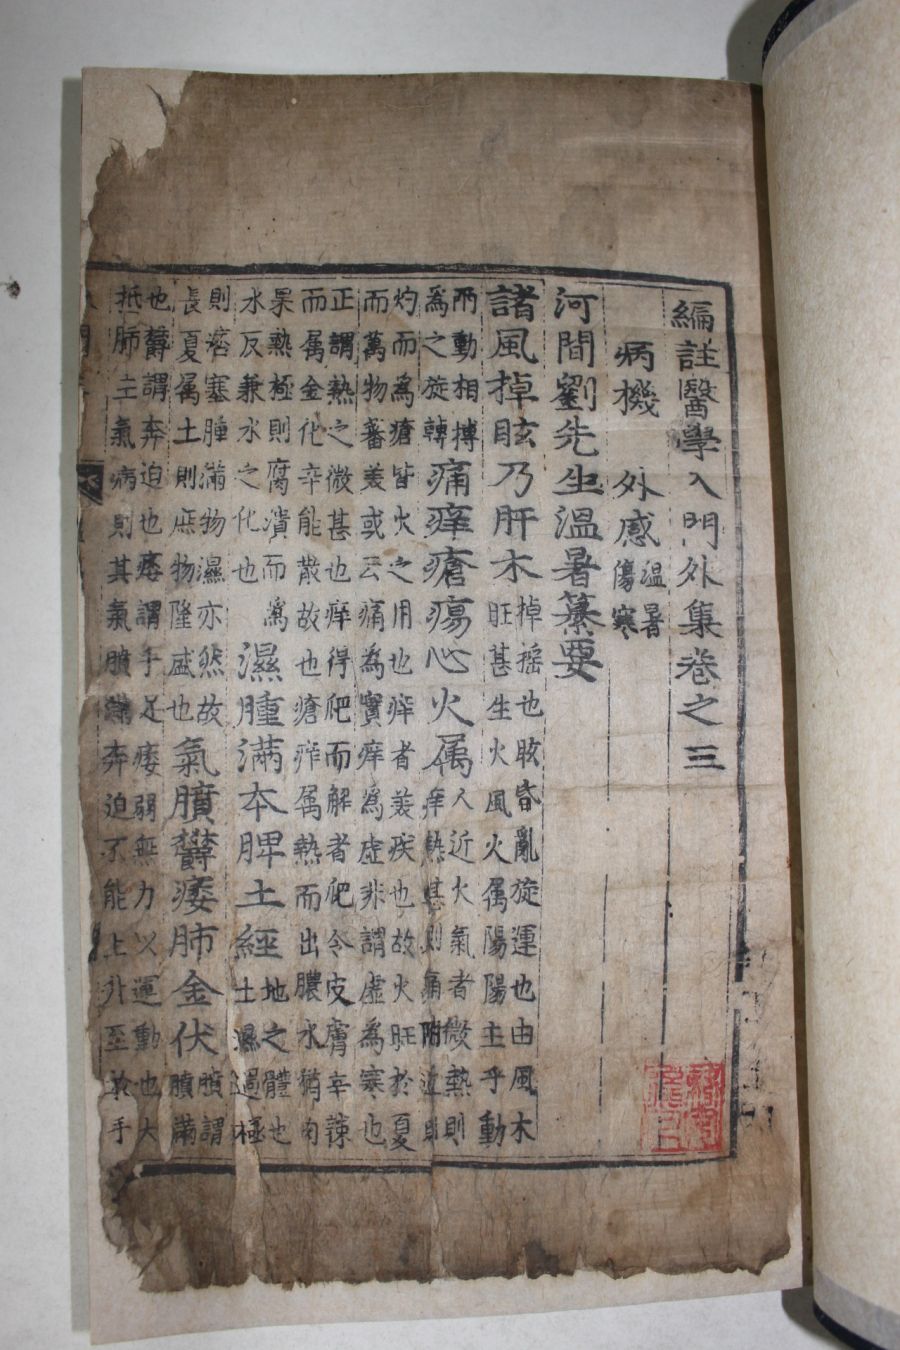 編註醫學入門外集卷之三
病機 外感 溫暑
傷寒
河間劉先生溫暑纂要
諸風掉眩乃肝木 掉搖也眩昏亂旋運也由風木
旺甚生火風火属陽陽主乎動
兩動相搏
為之旋轉 痛痒瘡瘍心火属 人近火氣者微熱則
痒熱甚則痛附近則
灼而為瘡皆火之用也痒者美疾也故火旺於夏
而萬物蕃美或云痛為實痒為虛非謂虛為寒也
正謂熱之微甚也痒得爬而解者爬令皮膚辛辣
而属金化辛能散故也瘡痒属熱而出膿水猶肉
果熱極則腐潰而為
水反兼水之化也 濕腫滿本脾土經 地之體也
土濕過極
則痞塞腫滿物濕亦然故
長夏属土則庶物隆盛也 氣膹鬱痿肺金伏 膹謂
膹滿
也鬱謂奔迫也痿謂手足痿弱無力以運動也大
抵肺主氣病則其氣膹滿奔迫不能上升至於手